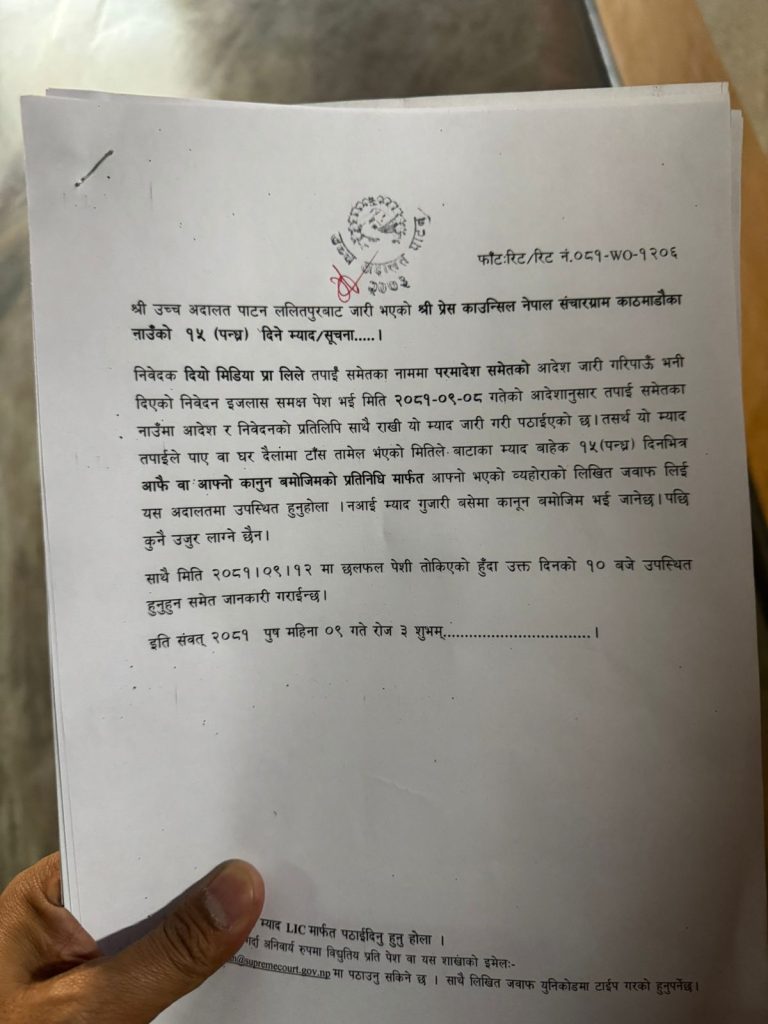 उच्च अदालत पाटन
२०७३
फाँट:रिट/रिट नं.०८१-WO-१२०६
श्री उच्च अदालत पाटन ललितपुरबाट जारी भएको श्री प्रेस काउन्सिल नेपाल संचारग्राम काठमाडौका
नाउँको १५ (पन्ध्र) दिने म्याद/सूचना.....।
निवेदक दियो मिडिया प्रा लिले तपाईं समेतका नाममा परमादेश समेतको आदेश जारी गरिपाऊँ भनी
दिएको निवेदन इजलास समक्ष पेश भई मिति २०८१-०९-०८ गतेको आदेशानुसार तपाई समेतका
नाउँमा आदेश र निवेदनको प्रतिलिपि साथै राखी यो म्याद जारी गरी पठाईएको छ।तसर्थ यो म्याद
तपाईले पाए वा घर दैलोमा टाँस तामेल भएको मितिले बाटाका म्याद बाहेक १५(पन्ध्र) दिनभित्र
आफै वा आफ्नो कानुन बमोजिमको प्रतिनिधि मार्फत आफ्नो भएको व्यहोराको लिखित जवाफ लिई
यस अदालतमा उपस्थित हुनुहोला ।नआई म्याद गुजारी बसेमा कानून बमोजिम भई जानेछ।पछि
कुनै उजुर लाग्ने छैन।
साथै मिति २०८१।०९।१२ मा छलफल पेशी तोकिएको हुँदा उक्त दिनको १० बजे उपस्थित
हुनुहुन समेत जानकारी गराईन्छ।
इति संवत् २०८१ पुष महिना ०९ गते रोज ३ शुभम्..................................।
म्याद LIC मार्फत पठाईदिनु हुनु होला ।
गर्दा अनिवार्य रुपमा विद्युतिय प्रति पेश वा यस शाखाको इमेल:-
@supremecourt.gov.np मा पठाउनु सकिने छ । साथै लिखित जवाफ युनिकोडमा टाईप गरको हुनुपर्नेछ।